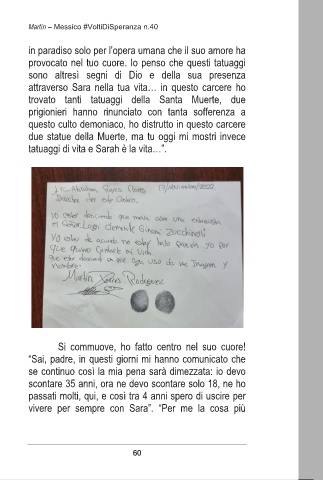 Martin – Messico #VoltiDiSperanza n.40
in paradiso solo per l'opera umana che il suo amore ha
provocato nel tuo cuore. Io penso che questi tatuaggi
sono altresì segni di Dio e della sua presenza
attraverso Sara nella tua vita… in questo carcere ho
trovato tanti tatuaggi della Santa Muerte, due
prigionieri hanno rinunciato con tanta sofferenza a
questo culto demoniaco, ho distrutto in questo carcere
due statue della Muerte, ma tu oggi mi mostri invece
tatuaggi di vita e Sarah è la vita…".
Lic. Abraham Reyes Flores 17/noviembre/2022
Director del este Cereso.
yo estoy
el Señor Clemente Zucchinelli
yo estoy de acuerdo yo por
que quiero mi vida
uso de mi Imagen y
Nombre.
Martin
Si commuove, ho fatto centro nel suo cuore!
"Sai, padre, in questi giorni mi hanno comunicato che
se continuo così la mia pena sarà dimezzata: io devo
scontare 35 anni, ora ne devo scontare solo 18, ne ho
passati molti, qui, e così tra 4 anni spero di uscire per
vivere per sempre con Sara". "Per me la cosa più
60